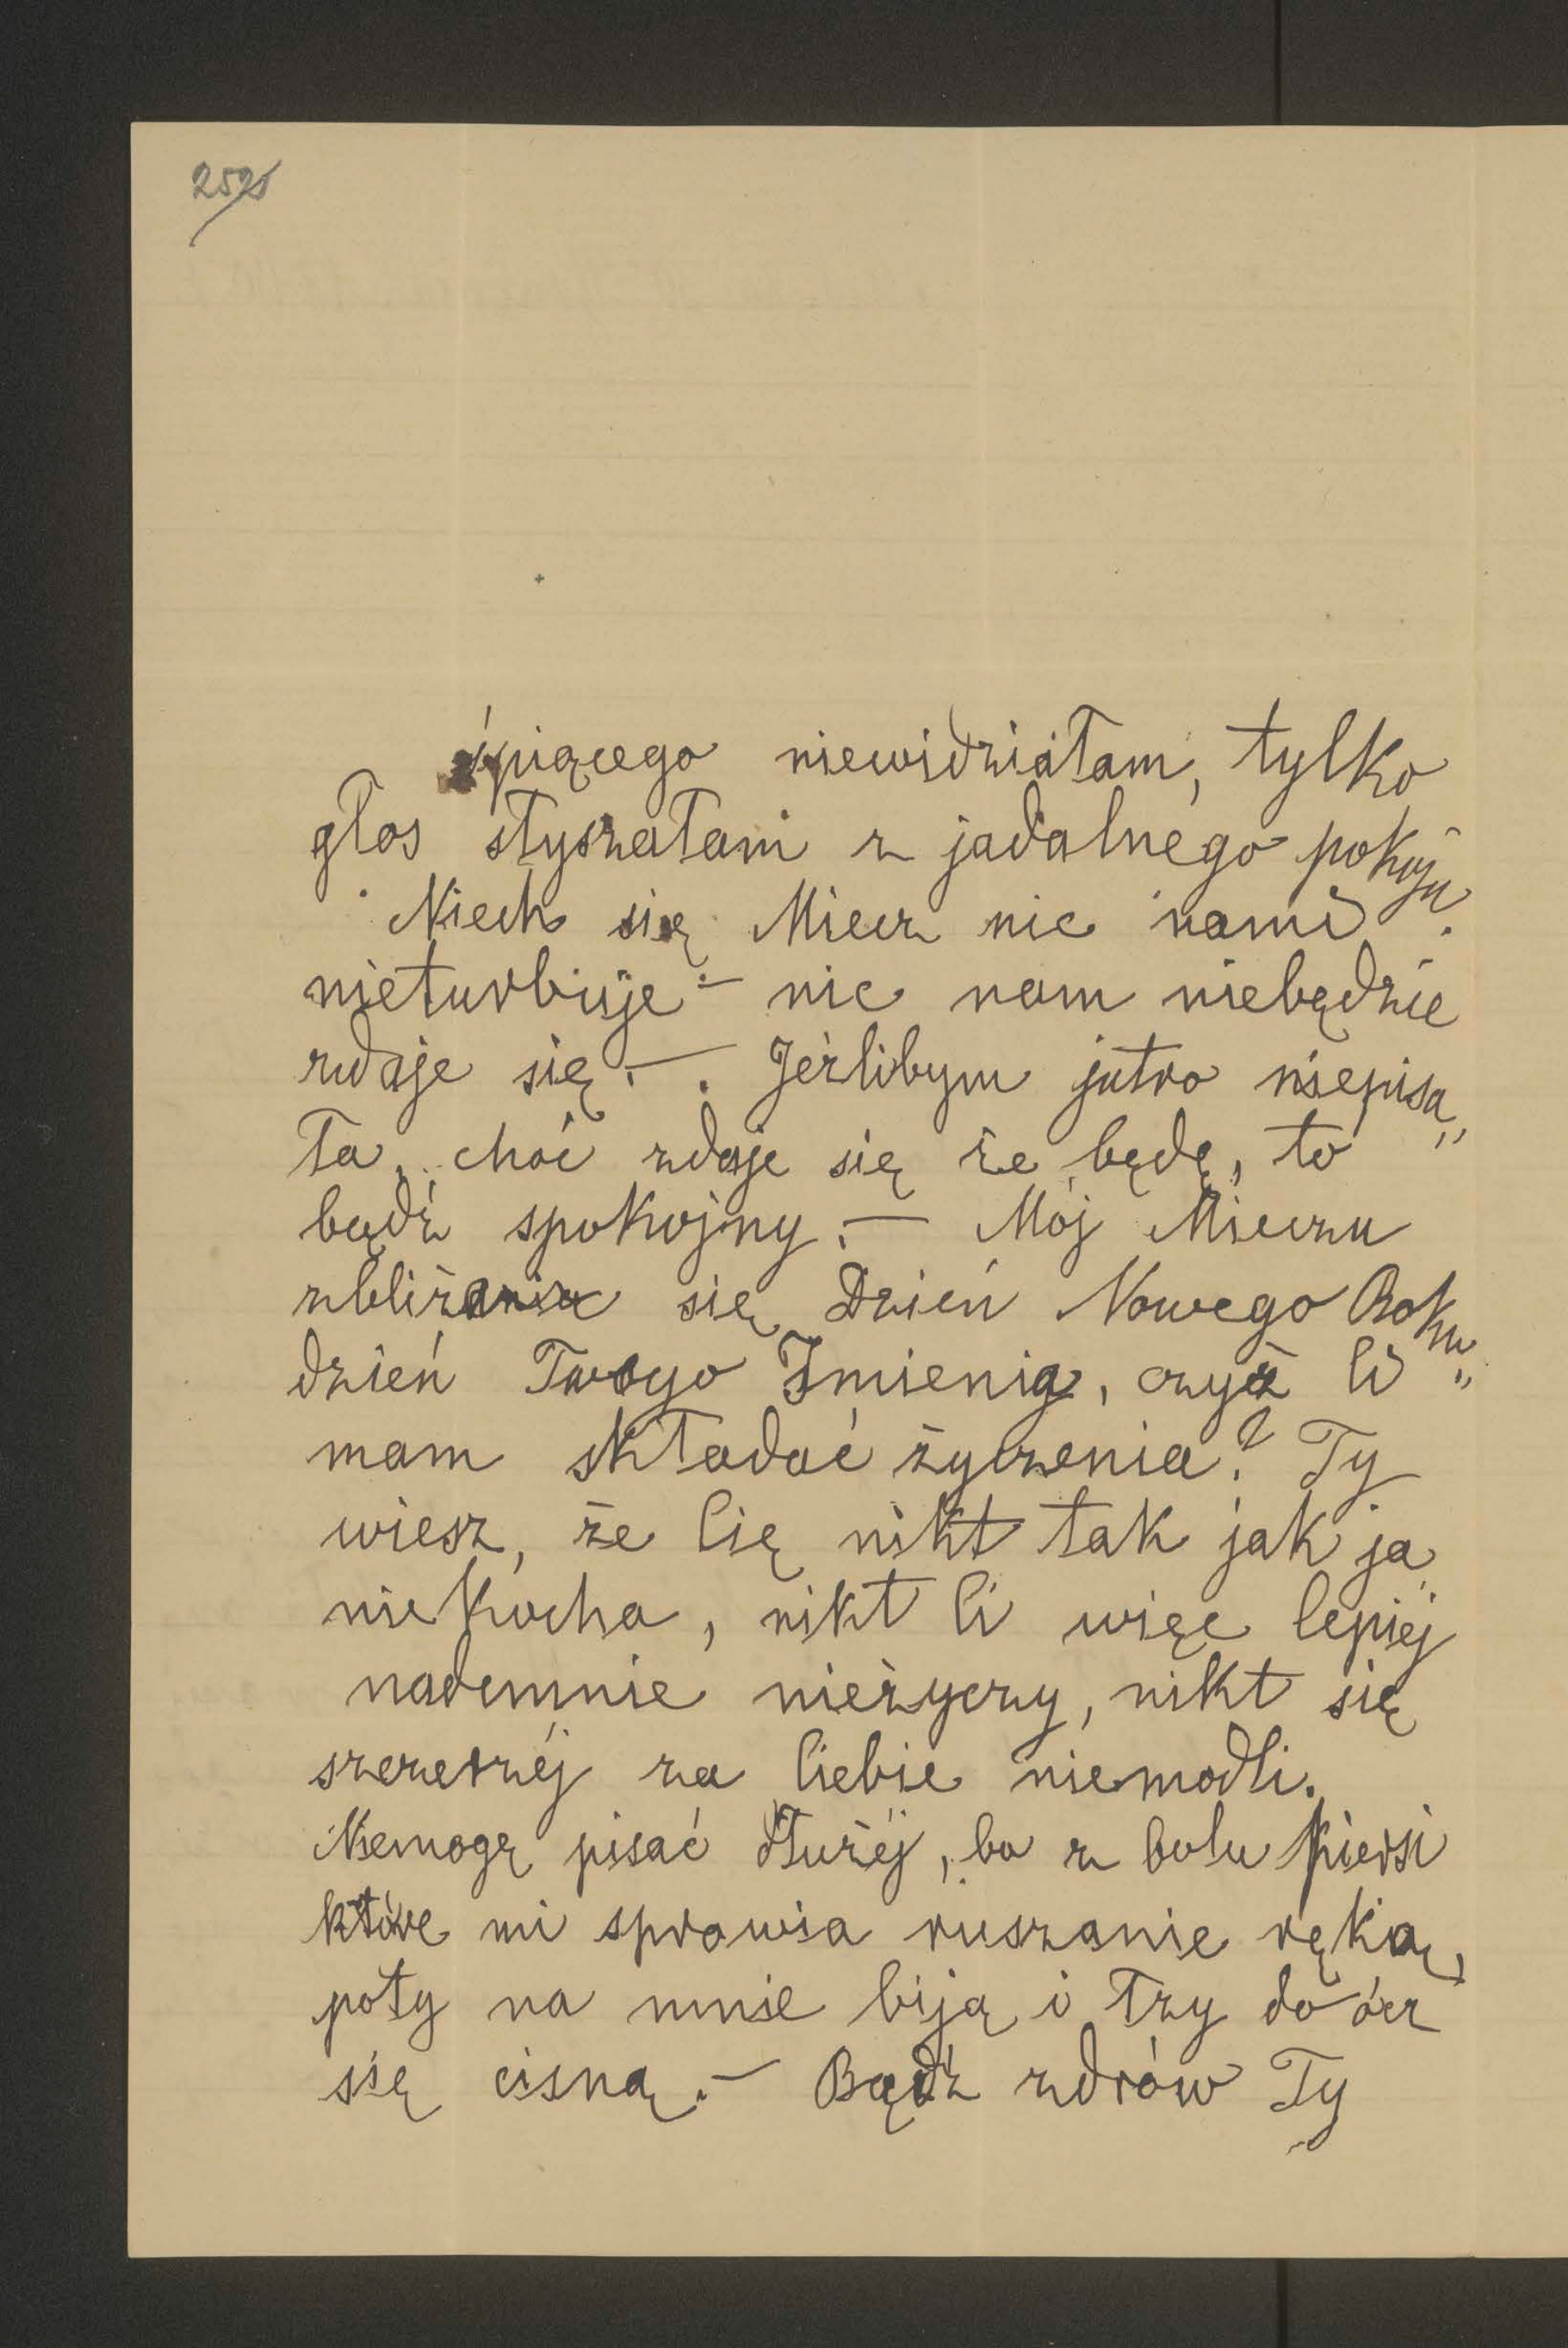 śpiącego niewidziałam, tylko
głos słyszałam z jadalnego pokoju.
Niech się Miecz nic nami
nieturbuje – nic nam niebędzie
zdaje się. – . Jeżlibym jutro niepisa„
ła, choć zdaje się że będę, to
bądź spokojny. – Mój Mieczu
zbliża się Dzień Nowego Roku„
dzień Twego Imienia, czyż Ci
mam składać życzenia? Ty
wiesz, że Cię nikt tak jak ja
niekocha, nikt Ci więc lepiéj
nademnie nieżyczy, nikt się
szczerzéj za Ciebie niemodli.
Niemogę pisać dłużéj, bo z bolu piersi
które mi sprawia ruszanie ręką,
poty na mnie biją i łzy do ócz
się cisną. – Bądź zdrów Ty